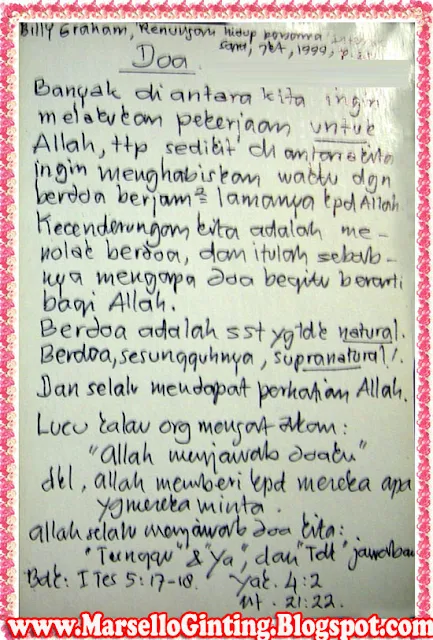 Billy Graham, Renungan hidup bersama
1999,
Doa
Banyak di antara kita ingin
melakukan pekerjaan untuk
Allah, ttp sedikit di antara kita
ingin menghabiskan waktu dgn
berdoa berjam² lamanya kpd Allah.
Kecenderungan kita adalah me-
nolak berdoa, dan itulah sebab-
nya mengapa doa begitu berarti
bagi Allah.
Berdoa adalah sst yg tdk natural.
Berdoa, sesungguhnya, supranatural!.
Dan selalu mendapat perhatian Allah.
Lucu kalau org mengatakan:
"Allah menjawab doaku"
dkl, Allah memberi kpd mereka apa
yg mereka minta.
Allah selalu menjawab doa kita:
"Tunggu" & "Ya", dan "Tdk" jawaban
Bdk: I Tes 5:17-18. Yak. 4:2
Mt. 21:22.
www.MarselloGinting.Blogspot.com